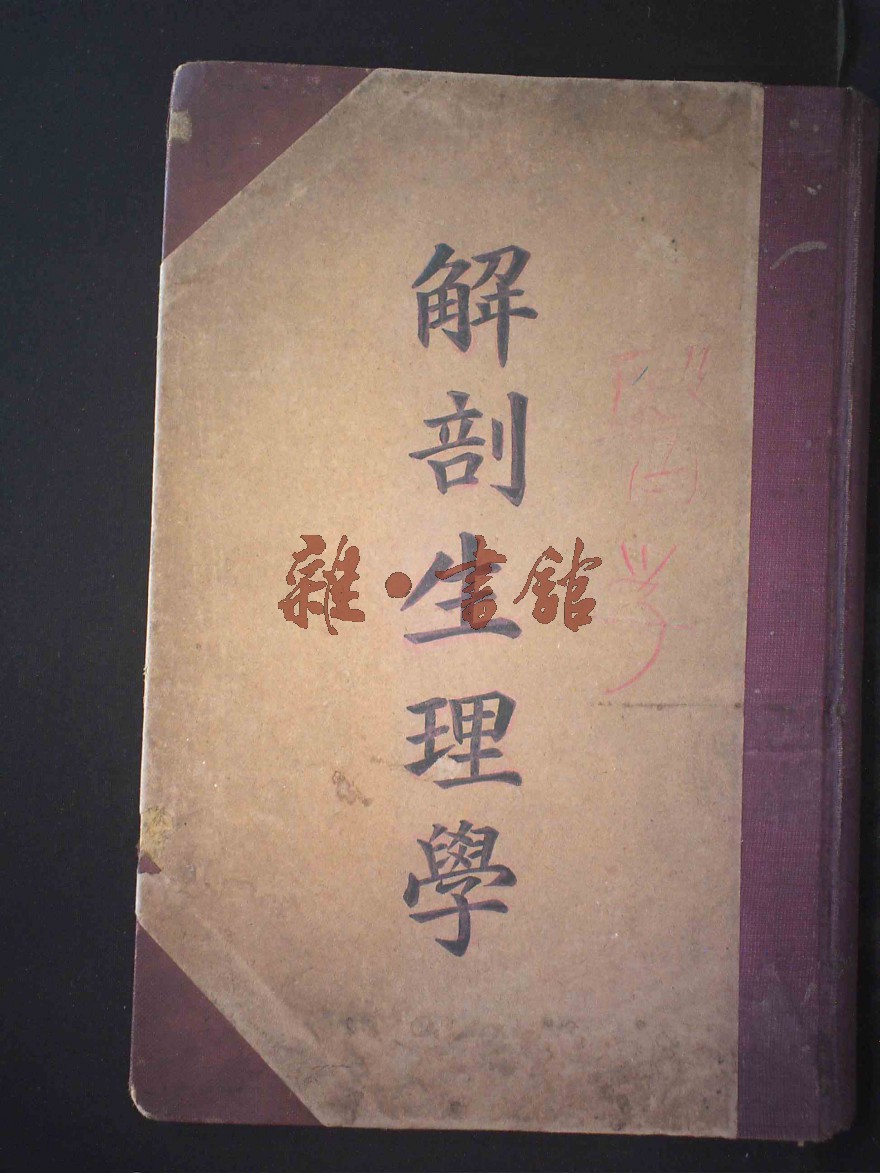 解剖生理學
雜·書館